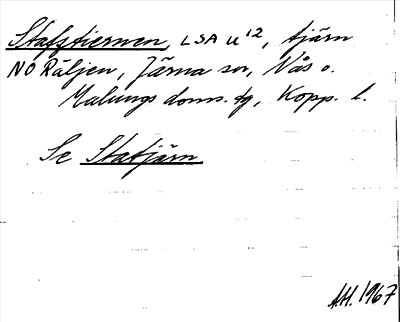 Stafstiernen, LSA u12, tjärn
NO Räljen, Järna sn, Nås o.
Malungs doms. tg, Kopp. l.
Se Statjärn
AH. 1967